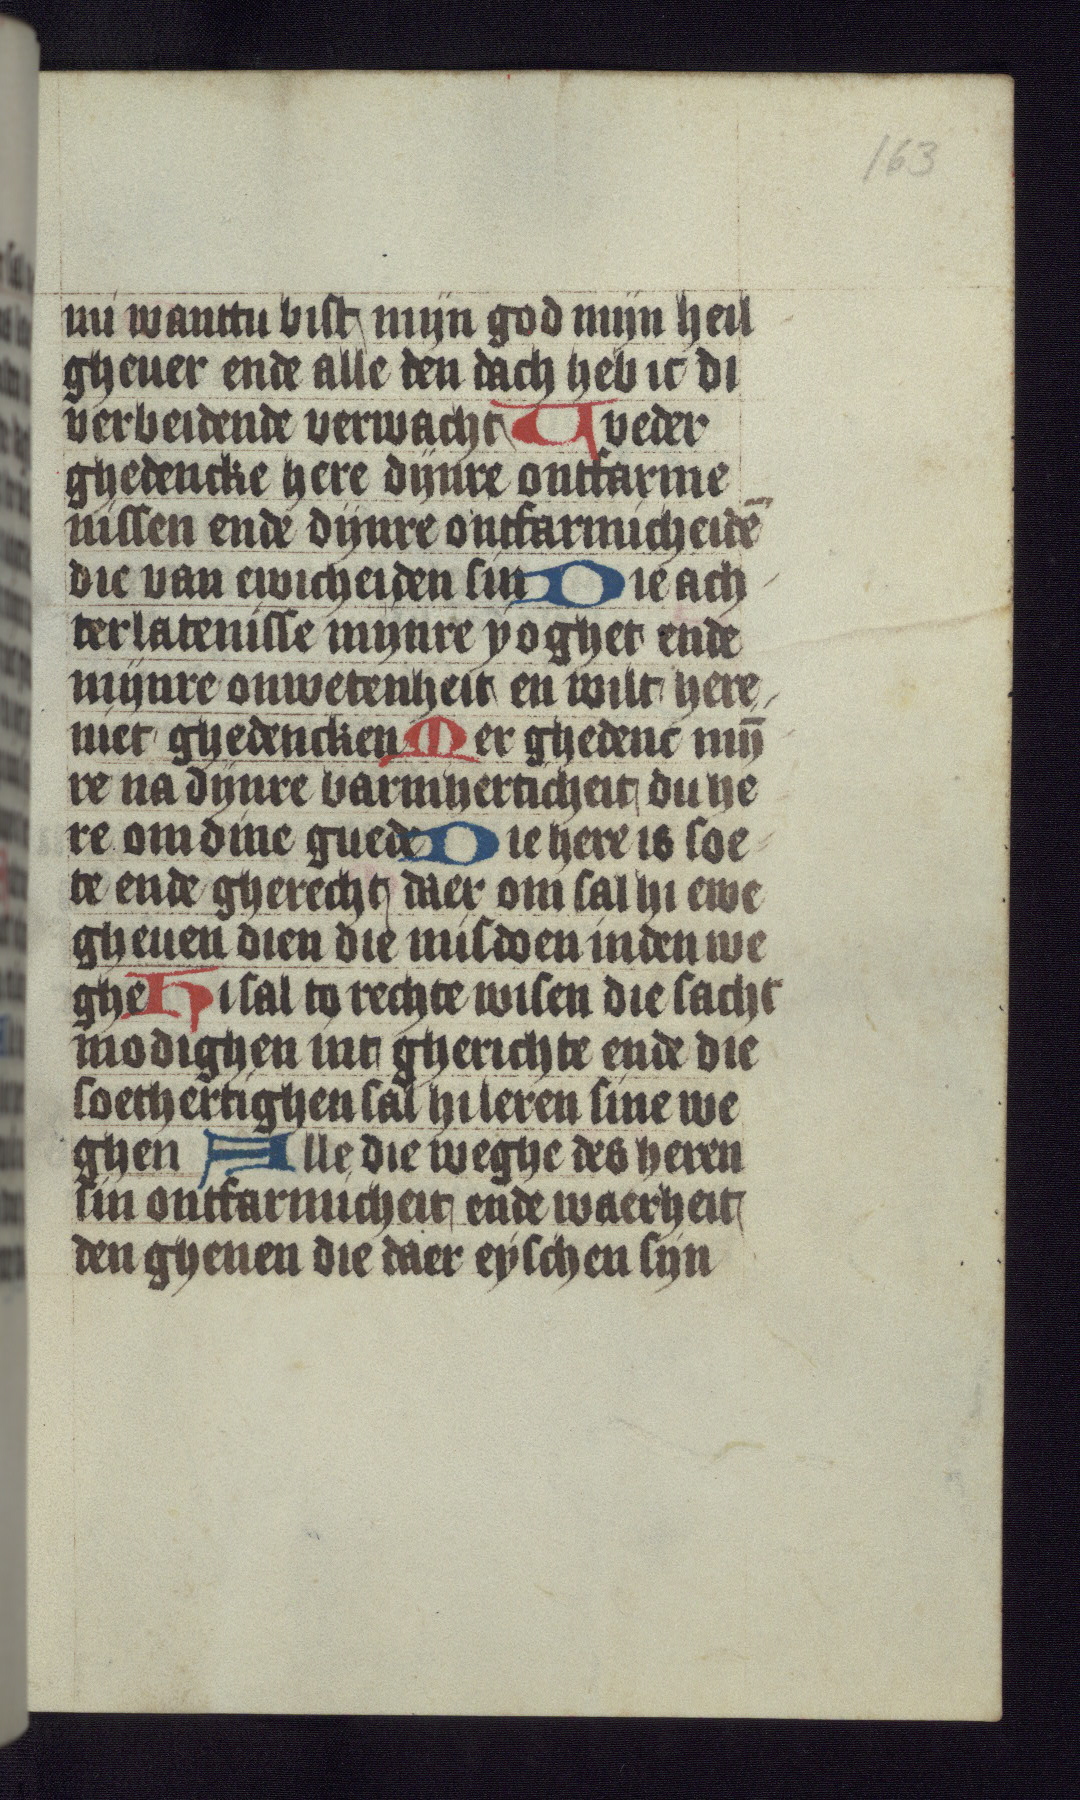 163
mi wanttu bist mijn god mijn heil
gheuer ende alle den dach heb ic di
verbeidende verwacht Vveder
ghedencke here dijnre ontfarme
nissen ende dijnre ontfarmicheidē
die van ewicheiden sin Die ach
terlatenisse mijnre yoghet ende
mijnre onwetenheit en wilt here
niet ghedencken Mer ghedenc mij̄
re na dijnre barmherticheit du he
re om dine guede Die here is soe
te ende gherecht daer om sal hi ewe
gheuen dien die misdoen inden we
ghe Hi sal to rechte wisen die sacht
modighen int gherichte ende die
soethertighen sal hi leren sine we
ghen Alle die weghe des heren
sin ontfarmicheit ende waerheit
den ghenen die daer eyschen sijn